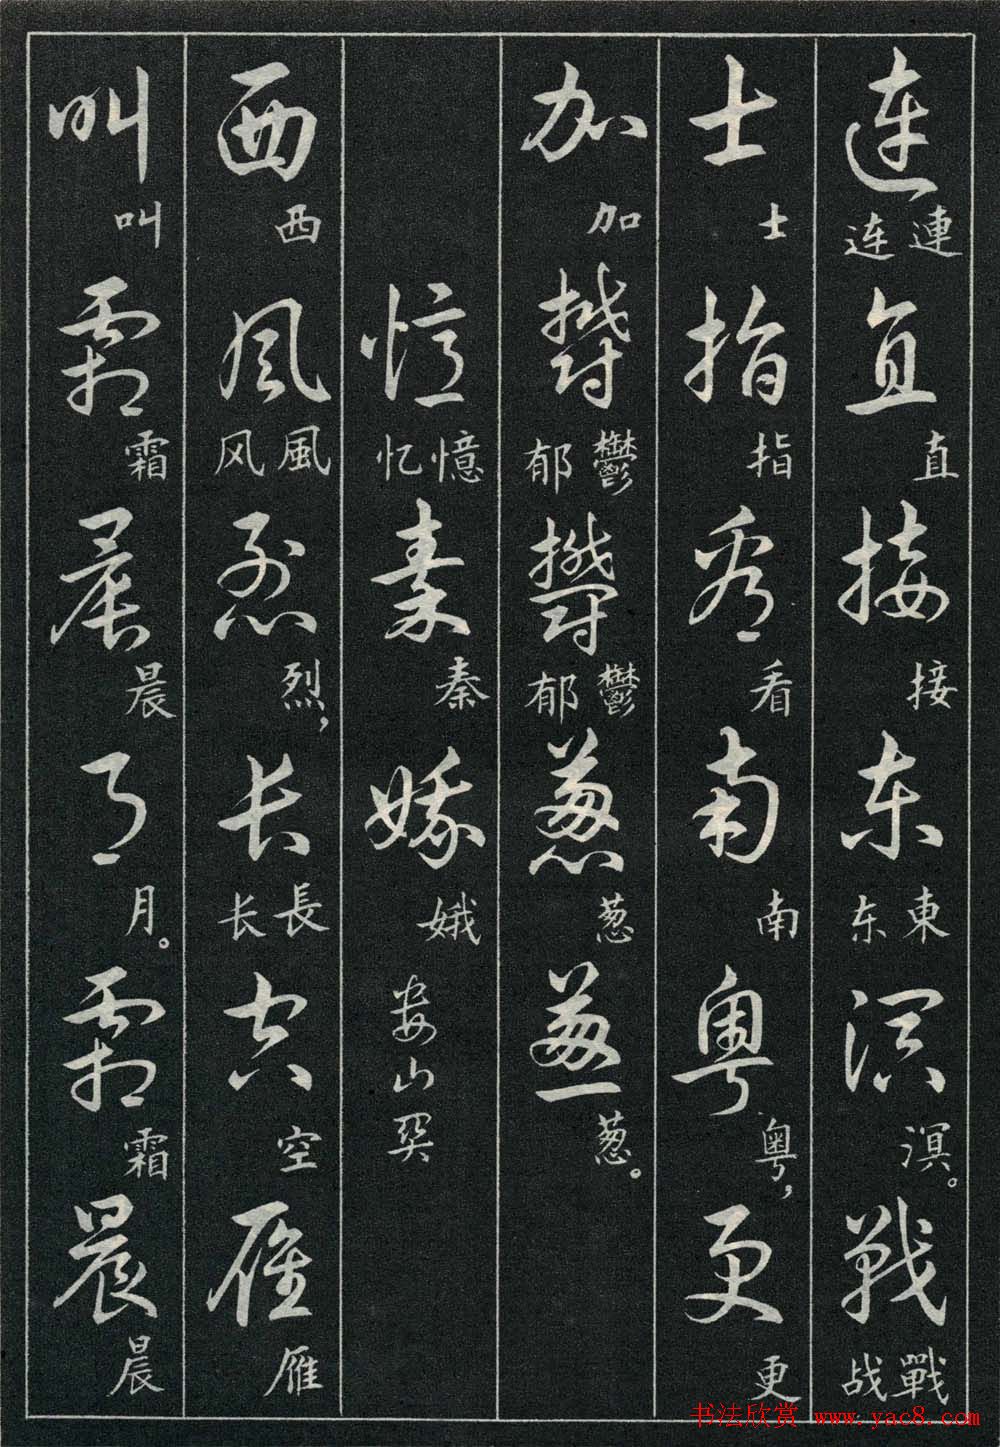 连 連 连 直 直 接 接 东 東 东 溟 溟。 戰 戰 战
士 士 指 指 看 看 南 南 粤 粤， 更 更
加 加 鬱 鬱 郁 鬱 鬱 郁 葱 葱 葱 葱。
憶 憶 忆 秦 秦 娥 娥 娄山关
西 西 風 風 风 烈 烈， 长 長 长 空 空 雁 雁
叫 叫 霜 霜 晨 晨 月 月。 霜 霜 晨 晨
书法欣赏 www.yac8.com